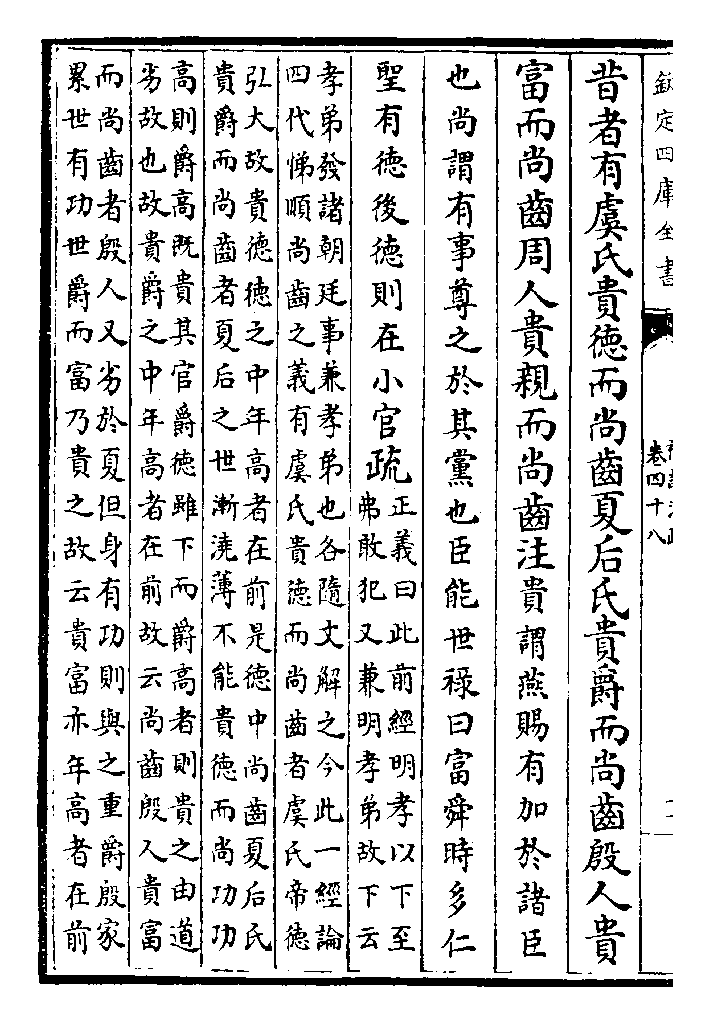 欽定四庫全書
卷四十八
昔者有虞氏貴德而尚齒夏后氏貴爵而尚齒殷人貴
富而尚齒周人貴親而尚齒注貴謂燕賜有加於諸臣
也尚謂有事尊之於其黨也臣能世祿曰富舜時多仁
聖有德後德則在小官疏
正義曰此前經明孝以下至
弗敢犯又兼明孝弟故下云
孝弟發諸朝廷事兼孝弟也各隨文解之今此一經論
四代悌順尚齒之義有虞氏貴德而尚齒者虞氏帝德
弘大故貴德德之中年高者在前是德中尚齒夏后氏
貴爵而尚齒者夏后之世漸澆薄不能貴德而尚功功
高則爵高既貴其官爵德雖下而爵高者則貴之由道
劣故也故貴爵之中年高者在前故云尚齒殷人貴富
而尚齒者殷人又劣於夏但身有功則與之重爵殷家
累世有功世爵而富乃貴之故云貴富亦年高者在前